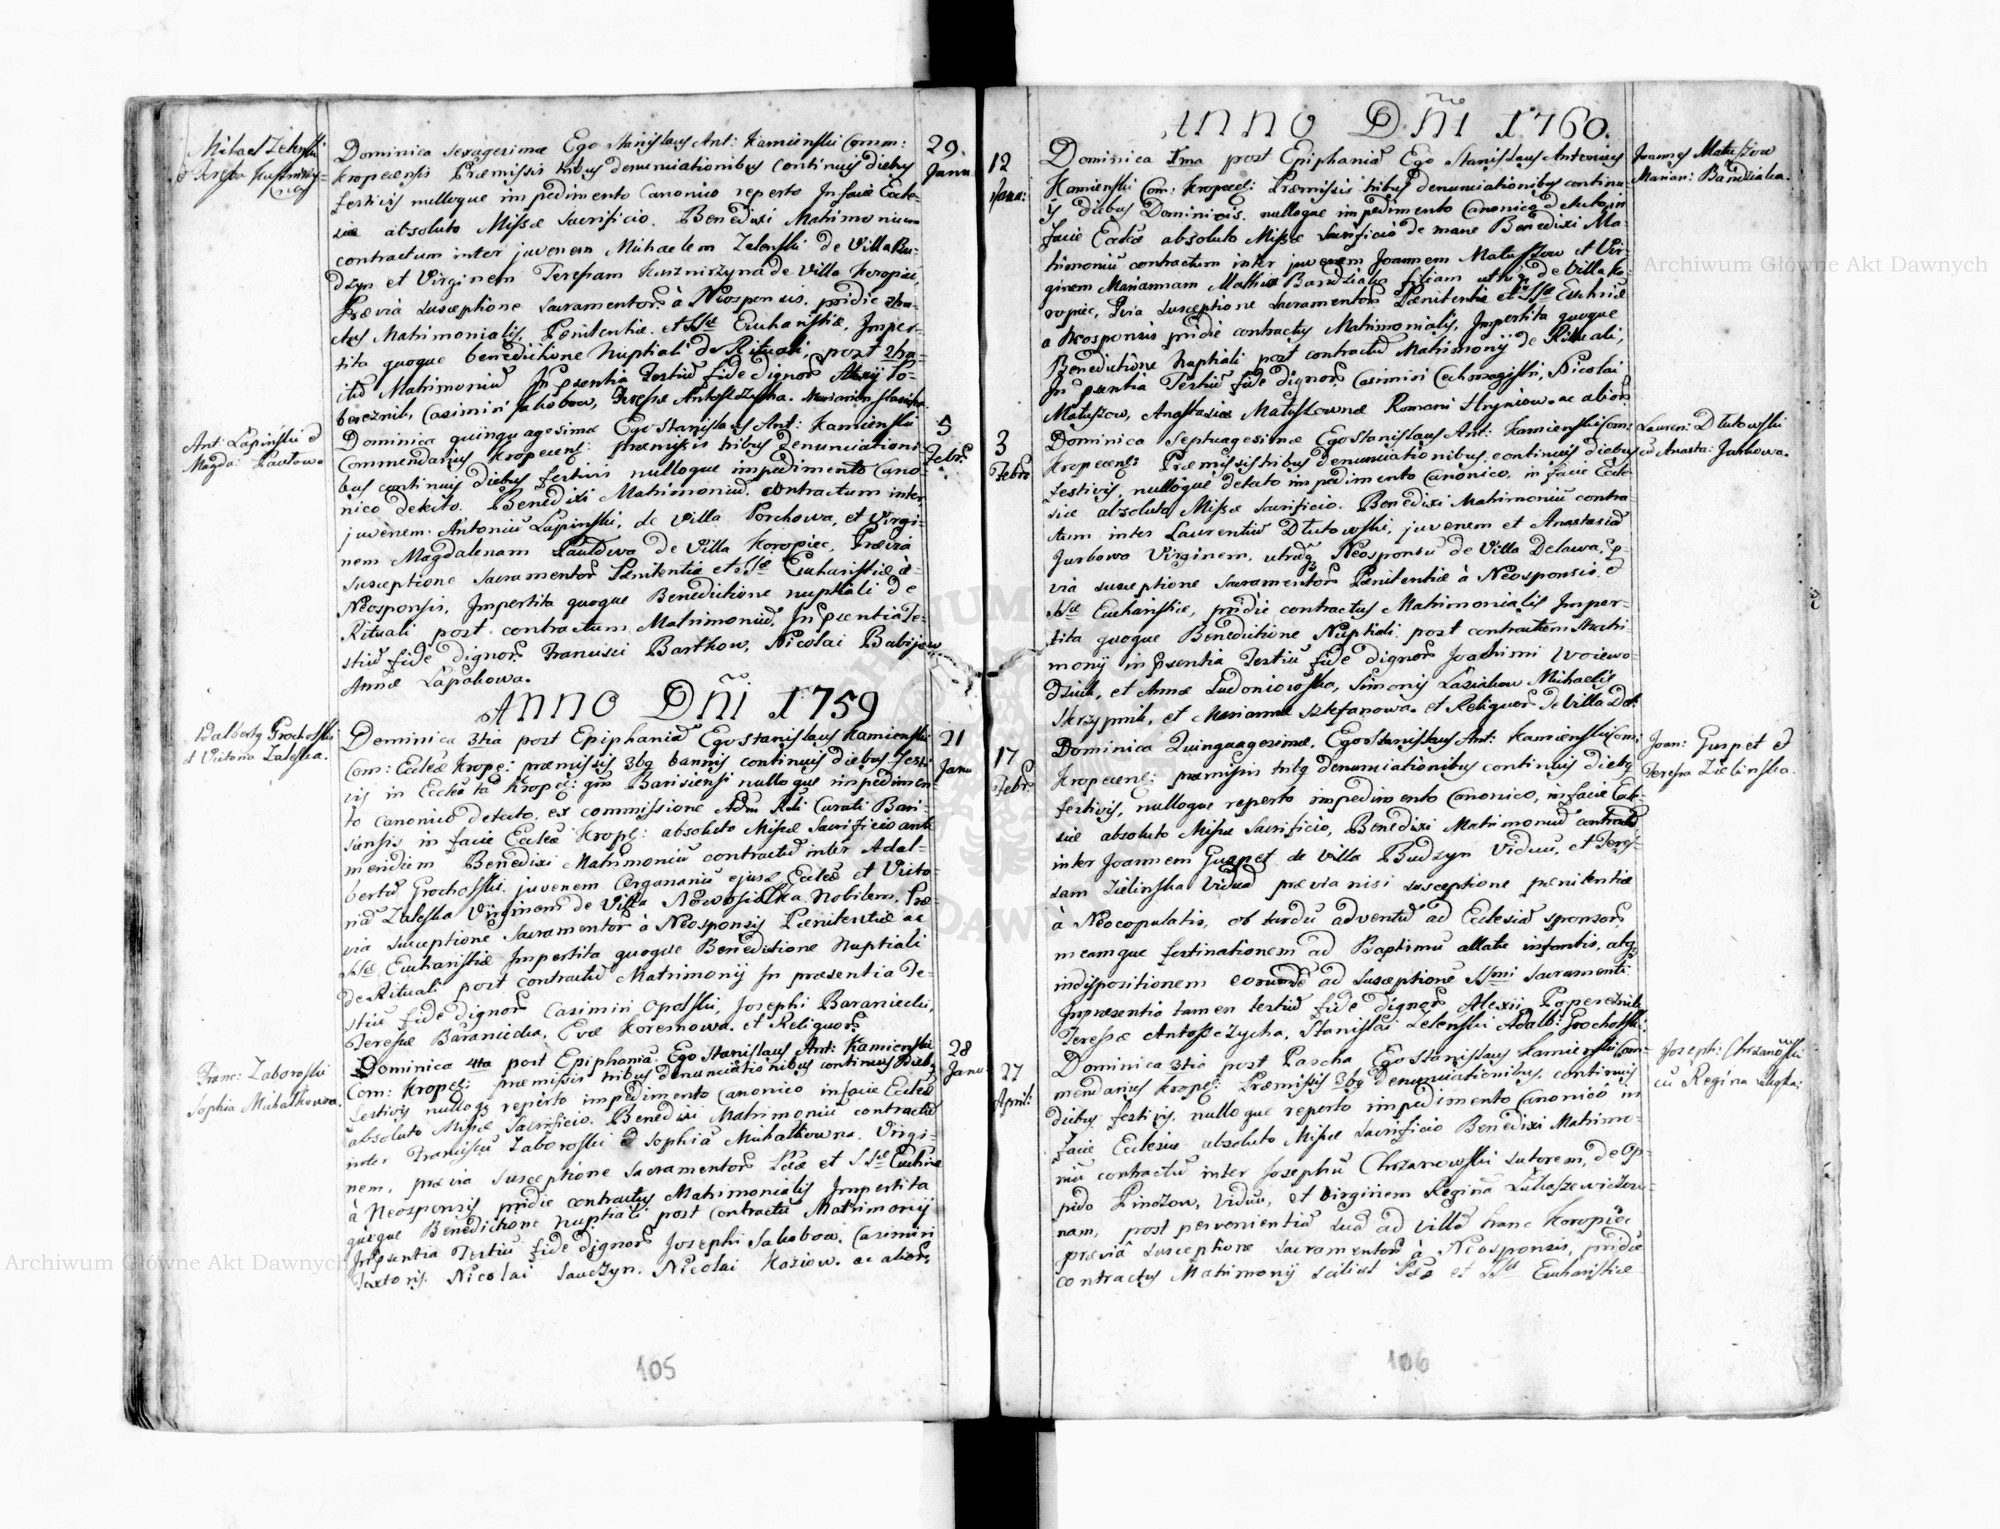 Michael Zelenski
et Teresia Kuszniržy=
na
29.
Janu:
Dominica sexagesimæ Ego Stanislaus Ant: Kamienski Comm:
Kropecensis Præmissis tribus denunciationibus continuis diebus
festivis nulloque impedimento Canonico reperto In facie Eccle-
siæ absoluto Missæ Sacrificio. Benedixi Matrimonium
contractum inter juvenem Michaelem Zelenski de Villa Bu-
dzyn et Virginem Teressam Kusznirzyna de Villa Koropiec,
Prævia susceptione Sacramentorũ à Neosponsis, pridie ctra-
ctus Matrimonialis, Pænitentiæ. et SSæ Eucharistiæ, Imper-
tita quoque benedictione Nuptiali de Rituali, post ctra-
ctũ Matrimoniũ In pñtia Testiũ fide dignorũ Alexij Po-
bereznik, Casimiri Jakobow, Teresæ Antoszczycha.
Ant: Lapinski et
Magda: Pawłowa
5
Febr:
Dominica quinquagesimæ Ego Stanislaus Ant: Kamienski
Commendarius Kropecens: præmissis tribus denunciationi-
bus continuis diebus festivis nulloque impedimento Cano-
nico detecto. Benedixi Matrimoniũ contractum inter
juvenem Antoniũ Lapinski, de Villa Porchowa, et Virgi-
nem Magdalenam Pawlowa de Villa Koropiec, Prævia
susceptione Sacramentorũ Pænitentiæ et SSæ Eucharistiæ a
Neosponsis, Impertita quoque Benedictione nuptiali de
Rituali post contractum Matrimoniũ, In pñcentia Te-
stiũ fide dignorũ Francisci Bartkow, Nicolai Babijow
Annæ Lapakowa.
ANNO DÑI 1759
Adalbertq Grochoski
et Victoria Zaleska.
21
Janu
Dominica 3tia post Epiphaniã Ego Stanislaus Kamienski
Com: Eccleæ Krope: præmissis 3bq bannis continuis diebus festi-
vis in Ecclã tã Krope: qm Barisiensi nulloque impedimen-
to canonico detecto, ex commissione Adm Rdi Curati Bari-
siensis in facie Eccleæ Krope: absoluto Missæ Sacrificio ante
meridiem Benedixi Matrimoniũ contractũ inter Adal-
bertũ Grochoski juvenem Organariũ ejusd Eccleæ et Victo-
riã Zaleska Virginem de Villa Nowosiolka Nobilem, Præ-
via susceptione Sacramentorũ à Neosponsis Pænitentiæ ac
SSæ Eucharistiæ Impertita quoque Benedictione Nuptiali
de Rituali post contractũ Matrimonij In præsentia Te-
stiũ fide dignorũ Casimiri Opolski, Josephi Baraniecki,
Teresiæ Baraniecka, Evæ Koremowa. et Reliquorũ
Franc: Zaboroski
Sophia Michałkowna.
28
Janu
Dominica 4ta post Epiphaniã Ego Stanislaus Ant: Kamienski
Com: Krope: præmissis tribus denunciationibus continuis diebq
festivis nulloq reperto impedimento canonico in facie Eccleæ
absoluto Missæ Sacrificio. Benedixi Matrimoniũ contractũ
inter Franciscũ Zaboroski et Sophiã Michałkowna. Virgi-
nem, prævia susceptione Sacramentorũ Pæe et SSæ Euchæ
à Neosponsis pridie contractus Matrimonialis Impertita
quoque Benedictione Nuptiali post contractũ Matrimonij
In pñsentia Testiũ fide dignorũ Josephi Jakobow, Casimiri
Textoris. Nicolai Sawczyn. Nicolai Koziow. ac aliorũ
105
ANNO DÑI 1760.
12
Janu:
Joannes Matuszow
Marian: Bandzialka.
Dominica Ima post Epiphaniã Ego Stanislaus Antonius
Kamienski Com: Kropeceñ: Præmissis tribus denunciationibus continu-
ijs diebus Dominicis. nulloque impedimento Canonico detecto, in
facie Eccleæ absoluto Missæ Sacrificio de mane Benedixi Ma-
trimoniũ contractum inter juvenem Joannem Matuszow et Vir-
ginem Mariannam Mathiæ Bandziaka filiam utrũq de Villa Ko-
ropiec, Pvia susceptione Sacramentorũ Pænitentiæ et SSæ Euchriæ
a Neosponsis pridie contractus Matrimonialis, Impertita quoque
Benedictione Nuptiali post contractũ Matrimonij de Rituali,
In psentia Testiũ fide dignorũ Casimiri Cechmagistri, Nicolai
Matuszow, Anastasiæ Matuszownæ Romani Hryniow. ac aliorũ
3
Febru
Lauren: Dłutowski
cũ Anasta: Jurkowa.
Dominica Septuagesimæ Ego Stanislaus Ant: Kamienski Com:
Kropecens Præmissis tribus denunciationibus continuis diebus
festivis, nulloque detecto impedimento Canonico, in facie Eccle-
siæ absoluto Missæ Sacrificio. Benedixi Matrimoniũ contra-
ctum inter Laurentiũ Dłutowski, juvenem et Anastasiã
Jurkowa Virginem, utrũq Neosponsũ de Villa Delawa, p-
via susceptione Sacramentorũ Pænitentiæ à Neosponsis et
SSæ Eucharistiæ, pridie contractus Matrimonialis Imper-
tita quoque Benedictione Nuptiali post contractum Matri-
monij in psentia Testiũ fide dignorũ Joachimi Woiewo-
dziuk, et Annæ Ludoniowska, Simonis Laziukow Michaelis
Skrzypnik, et Mariannæ Sztefanowa. et Reliquorũ De Villa Del:
17
Febr:
Joan: Guspet et
Teresia Zielinska.
Dominica Quinquagesimæ, Ego Stanislaus Ant: Kamienski Com:
Kropecene: præmissis tribq denunciationibus continuis diebq
festivis, nulloque reperto impedimento Canonico, in facie Eccle-
siæ absoluto Missæ Sacrificio, Benedixi Matrimoniũ contractũ
inter Joannem Guspet de Villa Budzyn Viduũ, et Teres-
sam Zielinska Viduã prævia nisi susceptione pænitentiæ
à Neocopulatis, ob tardũ adventũ ad Ecclesiã sponsorũ,
meamque festinationem ad Baptismũ allati infantis, atq
indispositionem eorundẽ ad susceptionẽ SSmi Sacramenti.
In præsentia tamen testiũ fide dignorũ Alexii Popereznik
Teresæ Antoszczycha, Stanislai Zelenski Adalb: Grochoski.
27
April:
Joseph: Chrzanowski
cũ Regina
Dominica 3tia post Pascha Ego Stanislaus Kamienski Com-
mendarius Krope: Præmissis 3bq denunciationibus, continuis
diebus festivis, nulloque reperto impedimento Canonico in
facie Ecclesiæ absoluto Missæ Sacrificio Benedixi Matrimo-
niũ contractũ inter Josephũ Chrzanowski sutorem, de Op-
pido Pinczow, Viduũ, et Virginem Reginã Łukaszewiczow-
nam, post pervenientiã suã ad villã hanc Koropiec
præviã susceptione Sacramentorũ à Neosponsis, pridie
contractus Matrimonij scilicet Pæe et SSæ Eucharistiæ
106
Archiwum Główne Akt Dawnych
Archiwum Główne Akt Dawnych